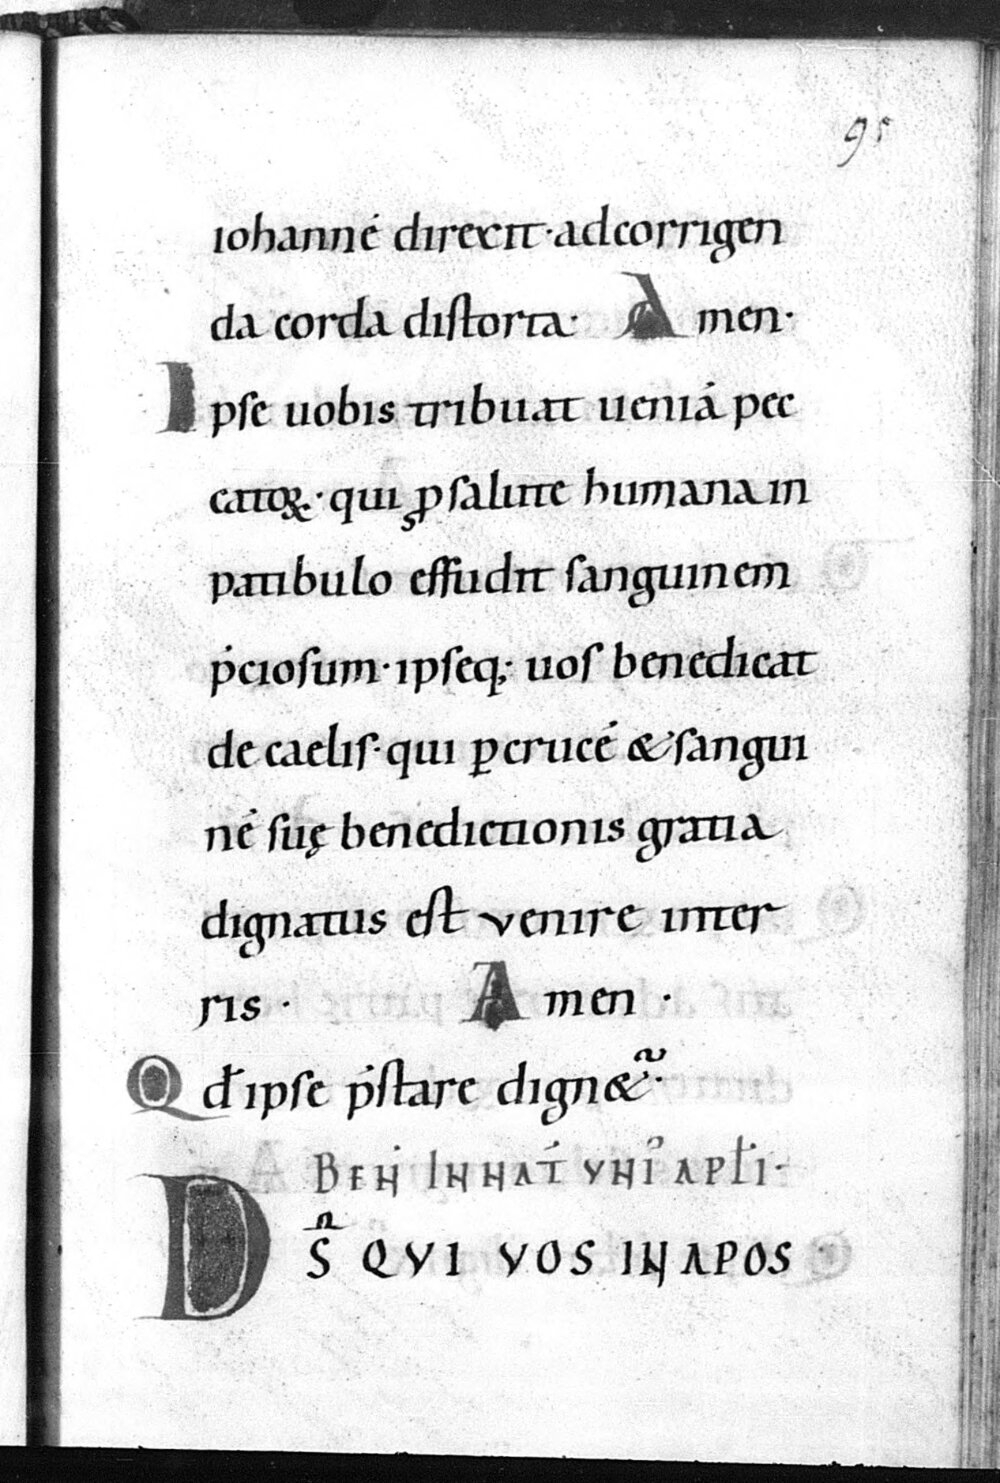 95
iohannē direxit· ad corrigen
da corda distorta· Amen·
Ipse uobis tribuat ueniā pec
catoꝝ· qui ꝓ salute humana in
patibulo effudit sanguinem
p̍ciosum· ipseq; uos benedicat
de caelis· qui ꝑ crucē & sangui
nē suę benedictionis gratia
dignatus est venire in ter
ris· Amen·
Qđ ipse p̄stare dign&᷑·
BEN̄ IN NAT̄ VNIꝰ APŁI·
DS̄ QVI VOS IN APOS